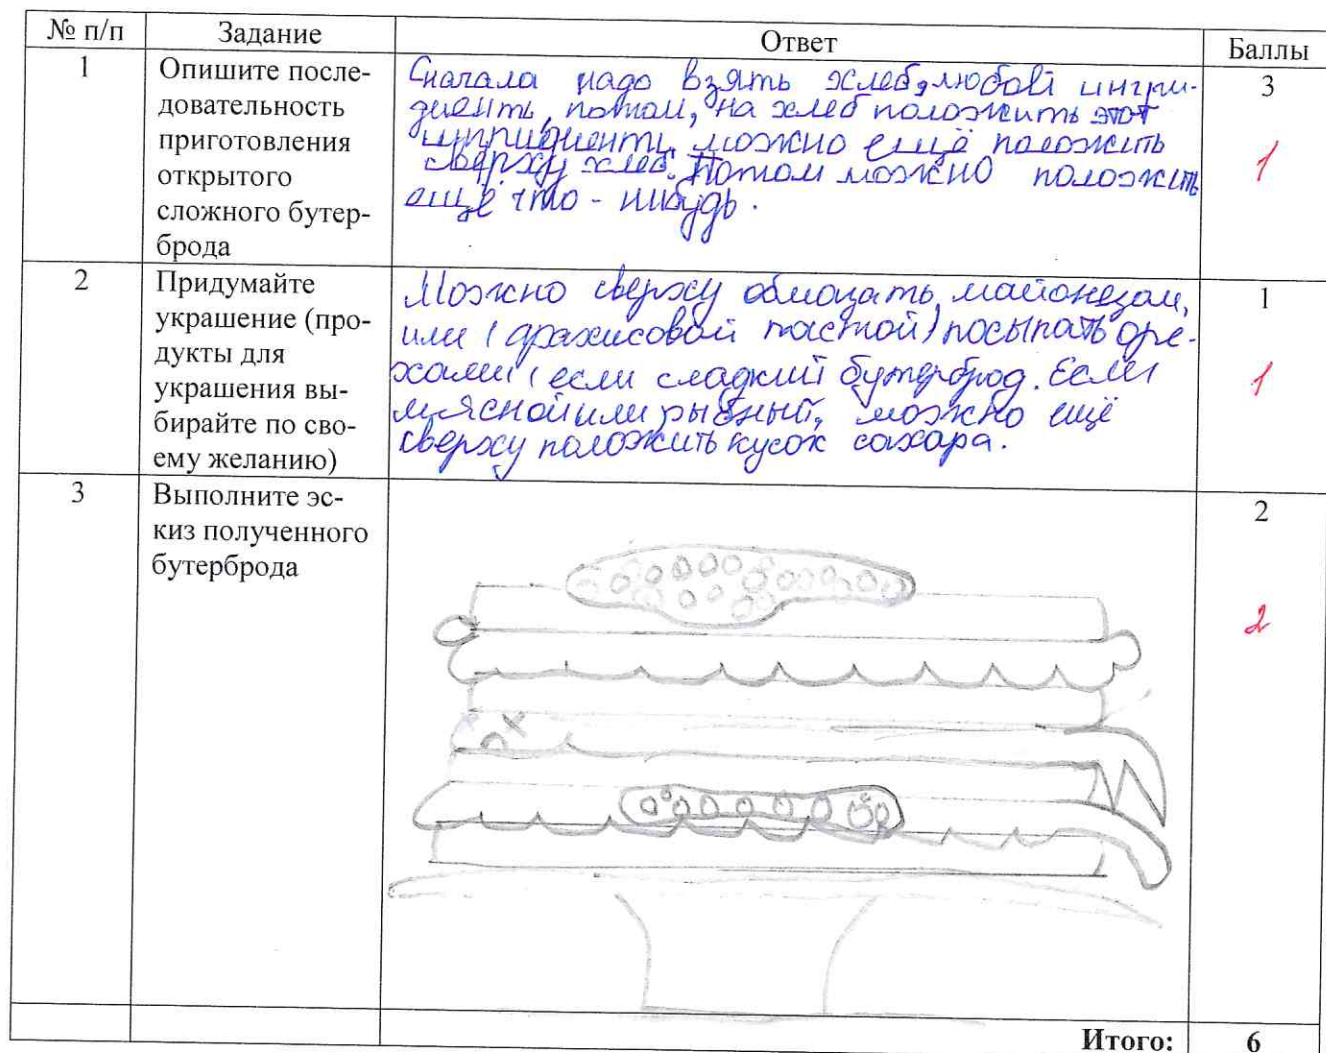 № п/п Задание Ответ Баллы
1
Опишите после-
довательность
приготовления
открытого
сложного бутер-
брода
Сначала надо взять хлеб, любой ингри-
диент, потом, на хлеб положить этот
ингридиент, можно ещё положить
сверху хлеб. Потом можно положить
ещё что-нибудь.
3
1
2
Придумайте
украшение (про-
дукты для
украшения вы-
бирайте по сво-
ему желанию)
Можно сверху обмазать майонезом,
или (арахисовой пастой) посыпать оре-
хами, если сладкий бутерброд. Если
мясной или рыбный, можно ещё
сверху положить кусок сахара.
1
1
3
Выполните эс-
киз полученного
бутерброда
2
2
Итого: 6